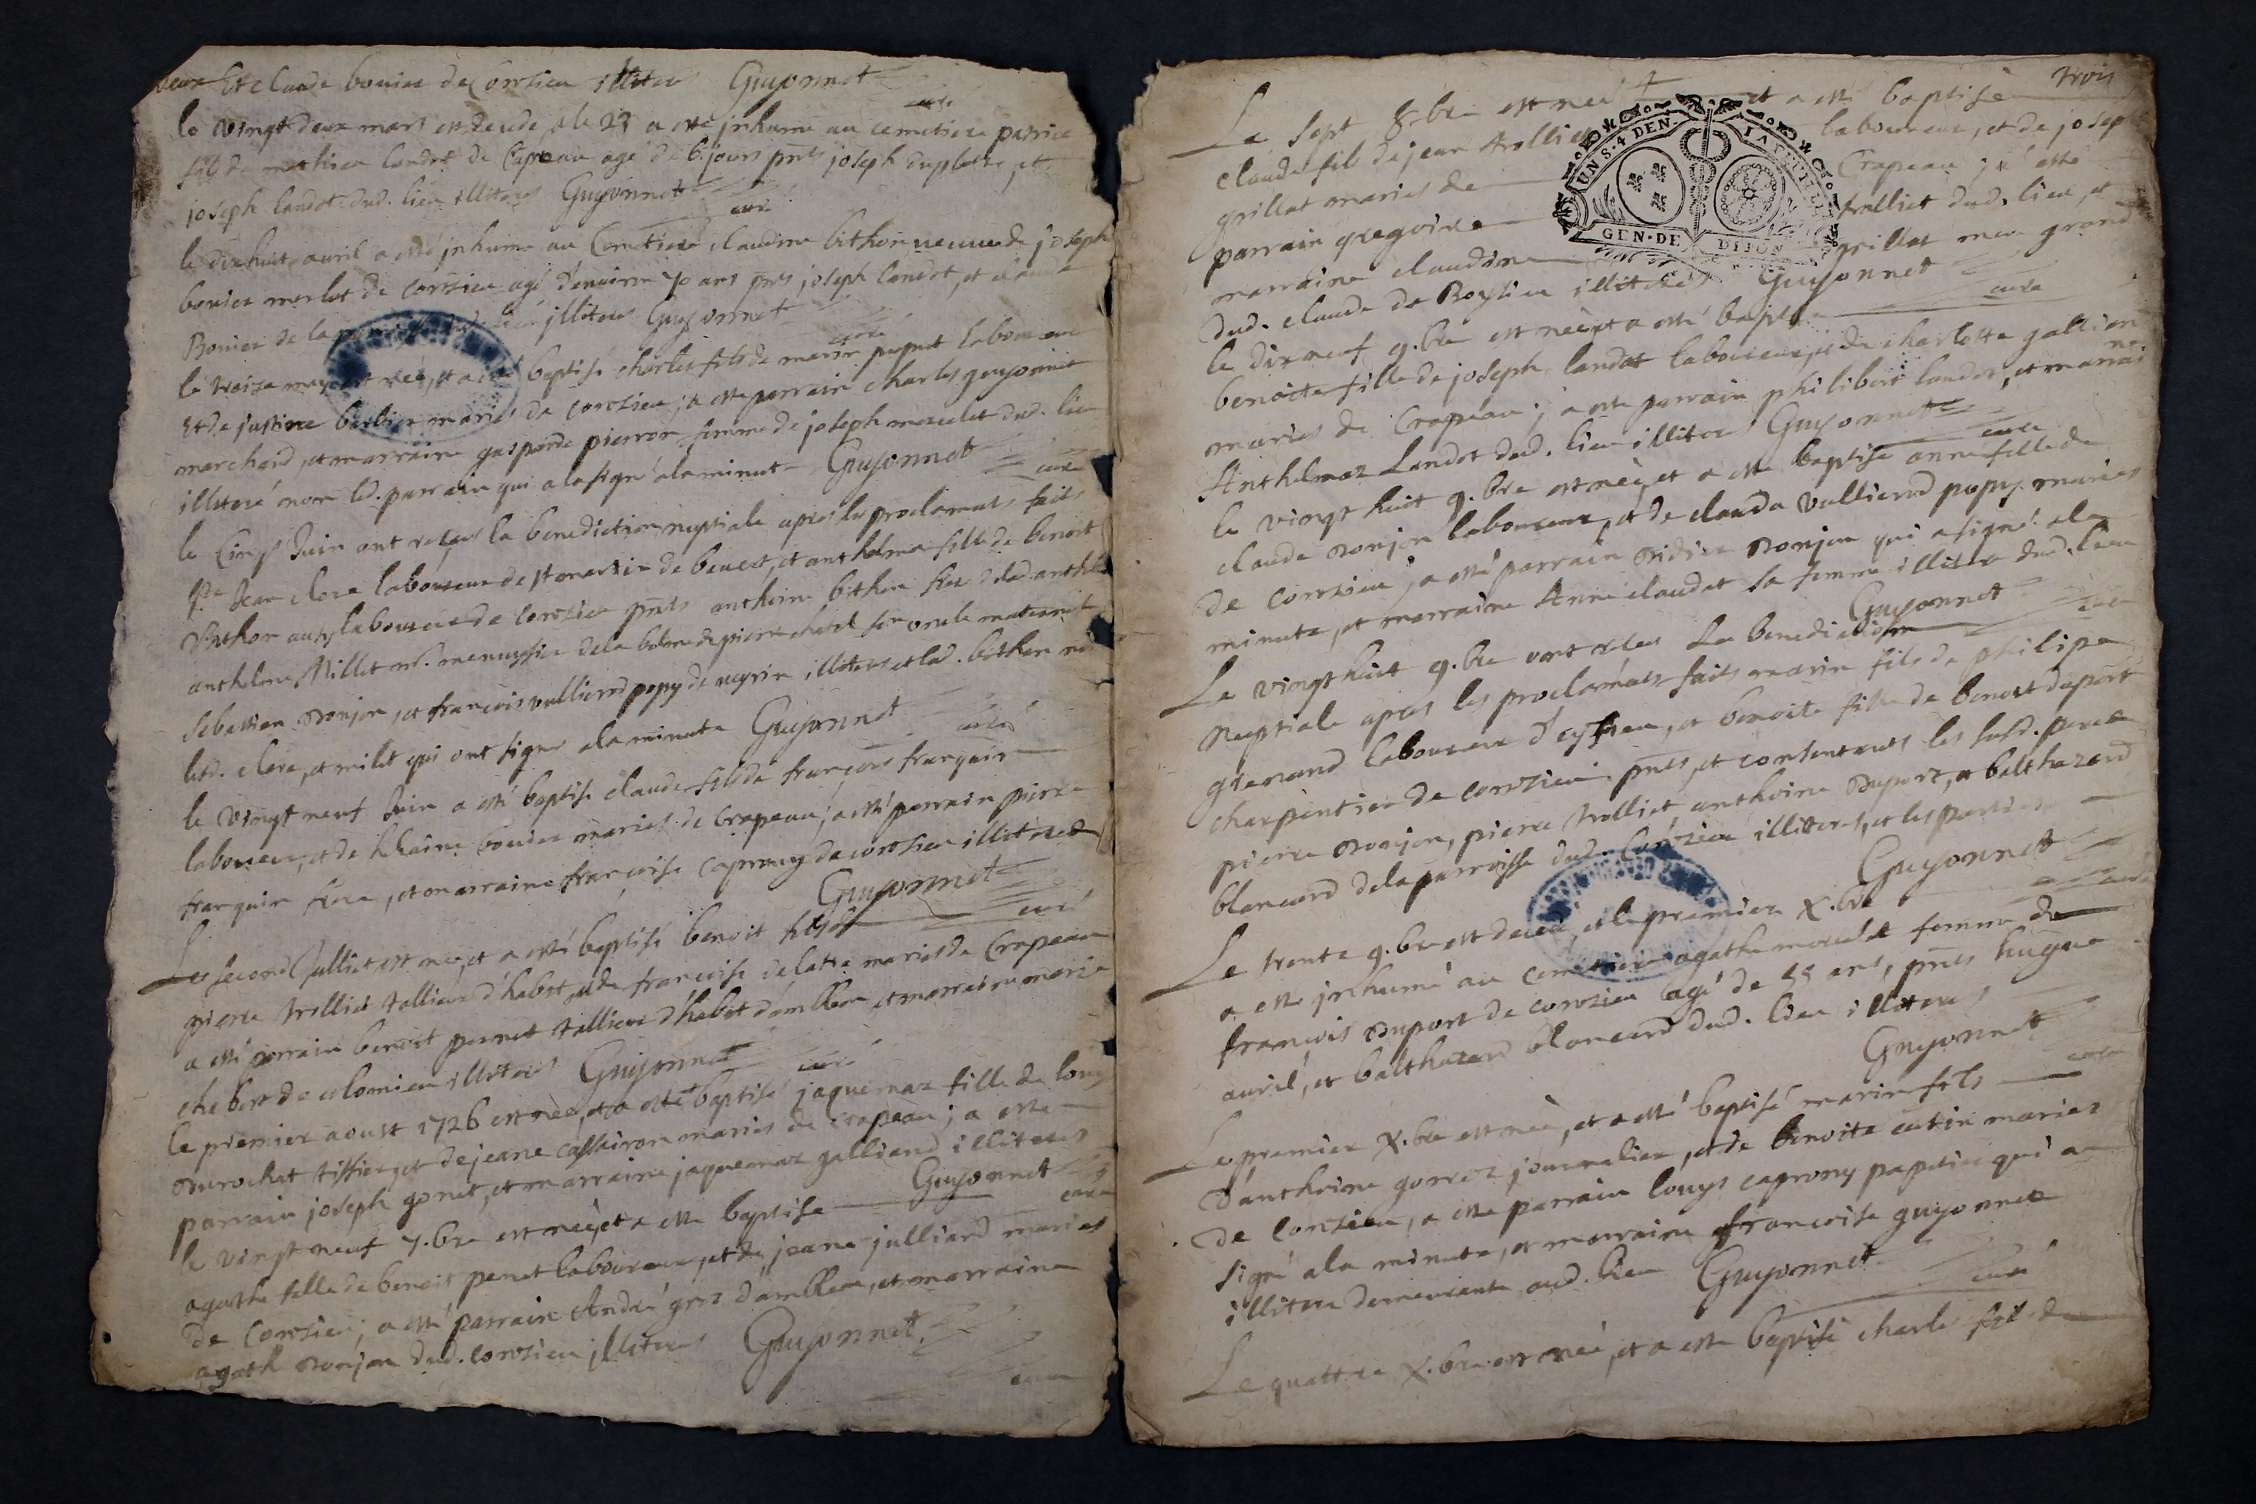 deux Et claude bonier de Corzieu illiteres Guyonnet
curé
le vingt deux mars est decedé, & le 23 a esté jnhumé au cemetiere patrice
fils de mathieu landot de Crapeau agé de 6 jours pnts joseph duplatre, et
joseph landot dud. lieu illiteres Guyonnet
curé
le dixhuit avril a esté jnhumé au Cemetiere claudine bithon veuve de joseph
bonier merlot de corzieu agé d'enuiron 70 ans pnts joseph landot, et claude
Bonier de la illiteres Guyonnet
curé
le treize may est né, et a esté baptisé charles fils de marin pupat laboureur
Et de justine barbier mariés de corzieu; a esté parrain charles guyonnet
marchand, et marraine gasparde pierron femme de joseph mercelet dud. lieu
illiteré non led. parrain qui a la signé a la minute Guyonnet
curé
le Cinq Juin ont receu la benediction nuptiale apres les proclamats faits
Jean clere laboureur de st martin de bauert, et anthelma fille de benoit
bithon aussy laboureur de corzieu pnts anthoine bithon frere de lad. anthel
anthelme Millet mr. menuysier de la balme de pierre chatel son oncle maternel
sebastien Monjon, et francois vulliend popy de neyrin illiteres et lad. bithon non
led. clere, et milet qui ont signé a la minute Guyonnet
curé
le vingt neuf Juin a esté baptisé claude fils de françois franquin
laboureur, et de helaine bonier mariés de Crapeau; a esté parrain pierre
franquin frere, et marraine françoise caprony de corzieu illiteres
Guyonnet
curé
Le second Julliet est né, et a esté baptisé benoit fils de
pierre trolliet tallieur d'habst, et de francoise delatre mariés de Crapeau
a esté parrain benoit pernet tallieur d'habit d'amblieu, et marraine marie
chebert de colomieu illiteres Guyonnet
curé
le premier aoust 1726 est née, et a esté baptisé jaquemaz fille de louys
Durochat tissier, et de jeane cassiron mariés de Crapeau; a esté
parrain joseph gonet, et marraine jaquemaz galliand illiteres
Guyonnet
curé
le vingt neuf 7.bre est née, et a esté baptisé
agathe fille de benoit penet laboureur, et de jeane julliard mariés
de Corzieu; a esté parrain André gros d'amblieu, et marraine
agath Monjon dud. corzieu illiteres Guyonnet
curé
trois
Le sept 8.bre est né et a esté baptisé
claude fils de jean trolliet laboureur, et de joseph
grillat mariés de Crapeau; a esté
parrain gregoire trolliet dud. lieu, et
marraine claudine grillat mere grand
dud. claude de Boyssieu illiteres Guyonnet
curé
UN S. 4 DEN. LA FEUILLE
GEN. DE DIJON
le dixneuf 9.bre est née, et a esté baptisé
benoite fille de joseph landot laboureur, et de charlotte gallien
mariés de Crapeau; a esté parrain philibert landot, et marrai
ne
Anthelmaz Landot dud. lieu illiteres Guyonnet
curé
le vingt huit 9.bre est née, et a esté baptisé anne fille de
claude Monjon laboureur, et de clauda vulliend popy mariés
de corzieu; a esté parrain Didier Monjon qui a signé a la
minute, et marraine Anne claudet sa femme illitere dud. lieu
Guyonnet
curé
Le vingt huit 9.bre ont receu La benediction
nuptiale apres les proclamats faits marin fils de philipe
grenand laboureur d'eysieu, et benoite fille de benoit duport
charpentier de corzieu, pnts, et consentants les susd. peres
pierre Monjon, pierre trolliet anthoine Duport, et balthazard
blancard de la parroisse dud. Corzieu illiteres, et les parties
Guyonnet
curé
Le trente 9.bre est decedé, et le premier X.bre
a esté jnhumé au cemetiere agathe mercelet femme de
francois Duport de corzieu agé de 55 ans, pnts hugue
auril, et balthazard blancard dud. lieu illiteres
Guyonnet
curé
Le premier X.bre est né, et a esté baptisé marin fils
d'anthoine gorroz journalier, et de benoite cutin mariés
de Corzieu, a esté parrain louys caprony papetier qui a
signé a la minute, et marraine francoise guyonnet
illitere demeurante aud. lieu Guyonnet
curé
Le quattre X.bre est né, et a esté baptisé charle fils de